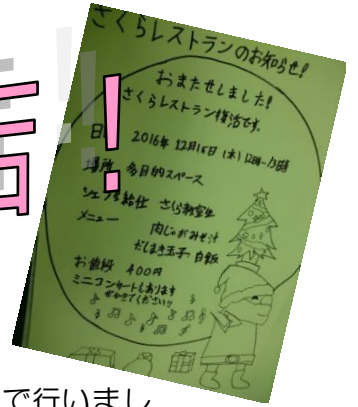 さくらレストランのお知らせ!
おまたせしました!
さくらレストラン復活です。
2016年 12月15日(木)12時~13時
場所 多目的スペース
シェフ&給仕 さくら教室生
メニュー
肉じゃがみそ汁
だしまき玉子 白飯
お値段 400円
ミニコンサートもあります
!
で行いまし